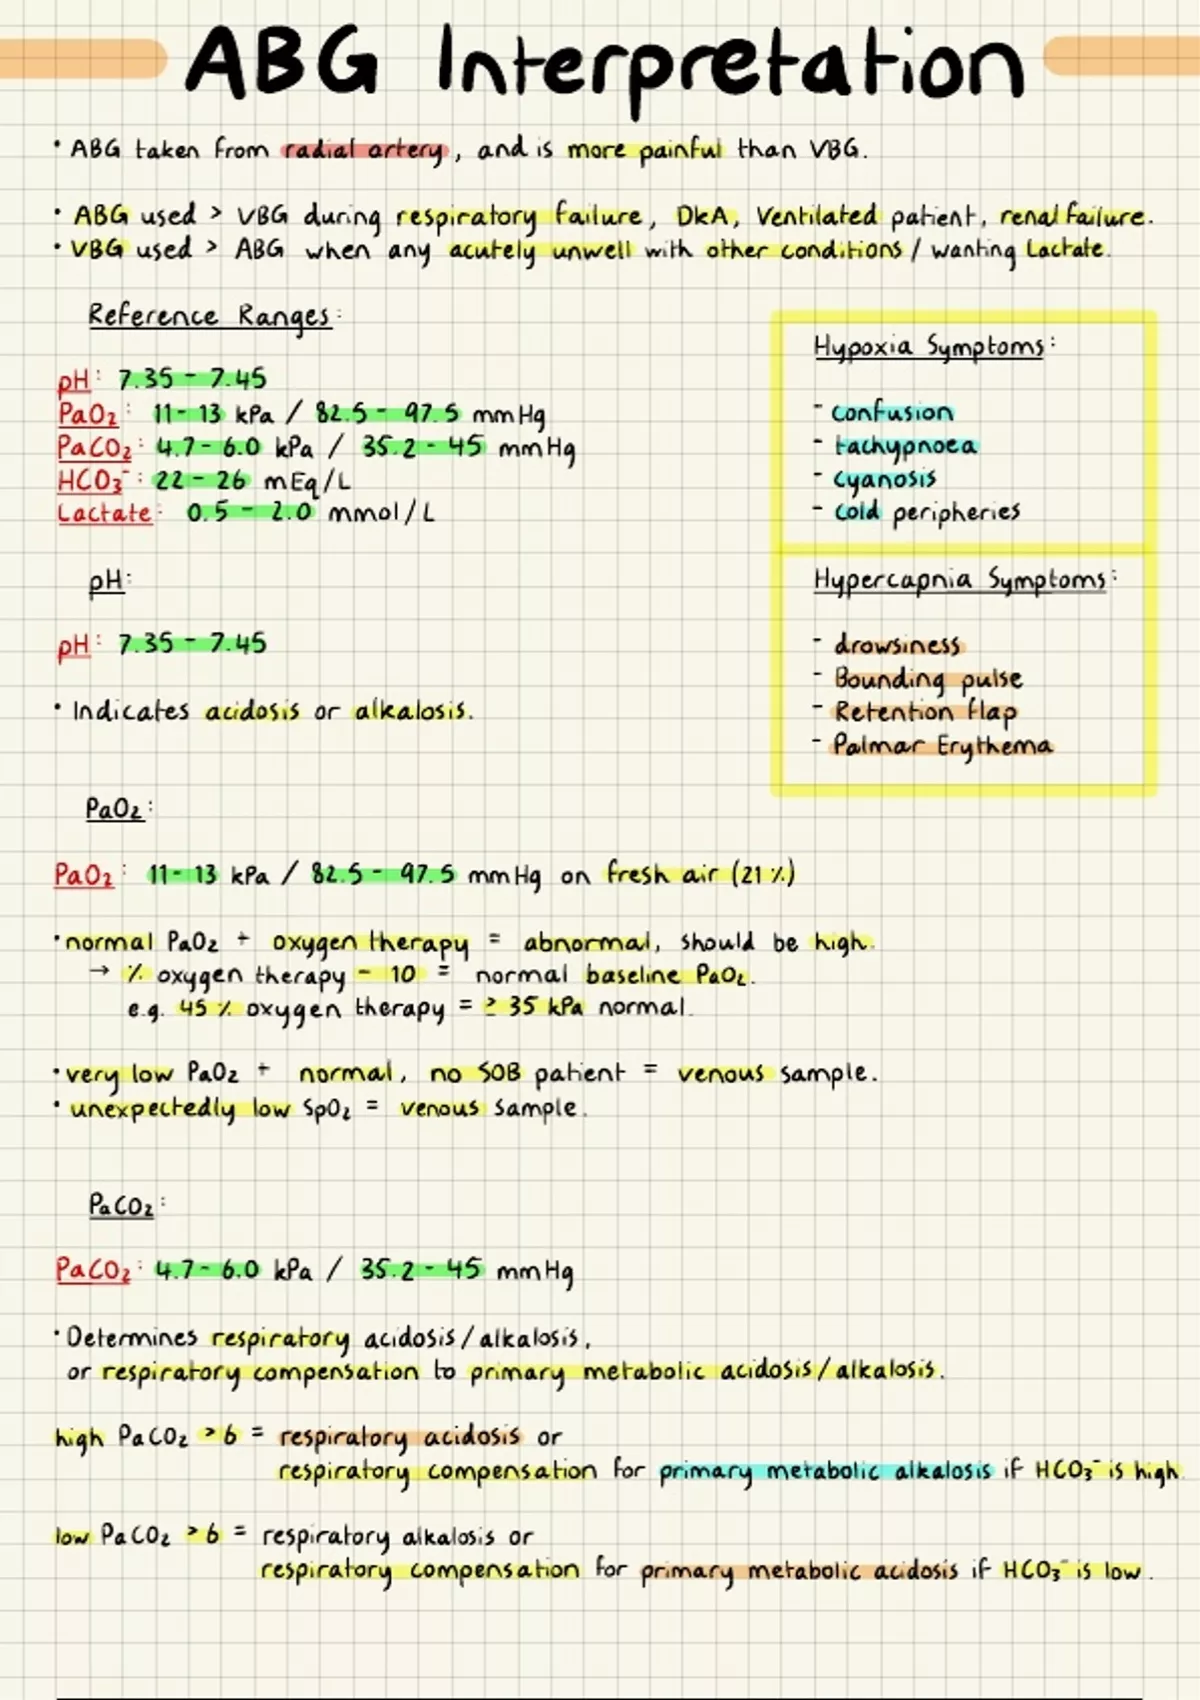 ABG Interpretation
· ABG taken from radial artery, and is more painful than VBG.
· ABG used > VBG during respiratory failure, DKA, Ventilated patient, renal failure.
· VBG used > ABG when any acutely unwell with other conditions / wanting Lactate.
Reference Ranges:
pH: 7.35 - 7.45
PaO₂: 11- 13 kPa / 82.5 - 97.5 mmHg
PaCO₂: 4.7 - 6.0 kPa / 35.2 - 45 mmHg
HCO₃⁻: 22 - 26 mEq/L
Lactate: 0.5 - 2.0 mmol/L
Hypoxia Symptoms:
- confusion
- tachypnoea
- cyanosis
- cold peripheries
Hypercapnia Symptoms:
- drowsiness
- Bounding pulse
- Retention flap
- Palmar Erythema
pH:
pH: 7.35 - 7.45
· Indicates acidosis or alkalosis.
PaO₂:
PaO₂: 11- 13 kPa / 82.5 - 97.5 mmHg on fresh air (21%)
· normal PaO₂ + oxygen therapy = abnormal, should be high.
→ % oxygen therapy - 10 = normal baseline PaO₂.
e.g. 45% oxygen therapy = ≥ 35 kPa normal.
· very low PaO₂ + normal, no SOB patient = venous sample.
· unexpectedly low SpO₂ = venous sample.
PaCO₂:
PaCO₂: 4.7 - 6.0 kPa / 35.2 - 45 mmHg
· Determines respiratory acidosis/alkalosis,
or respiratory compensation to primary metabolic acidosis/alkalosis.
high PaCO₂ >6 = respiratory acidosis or
respiratory compensation for primary metabolic alkalosis if HCO₃⁻ is high
low PaCO₂ >6 = respiratory alkalosis or
respiratory compensation for primary metabolic acidosis if HCO₃⁻ is low.